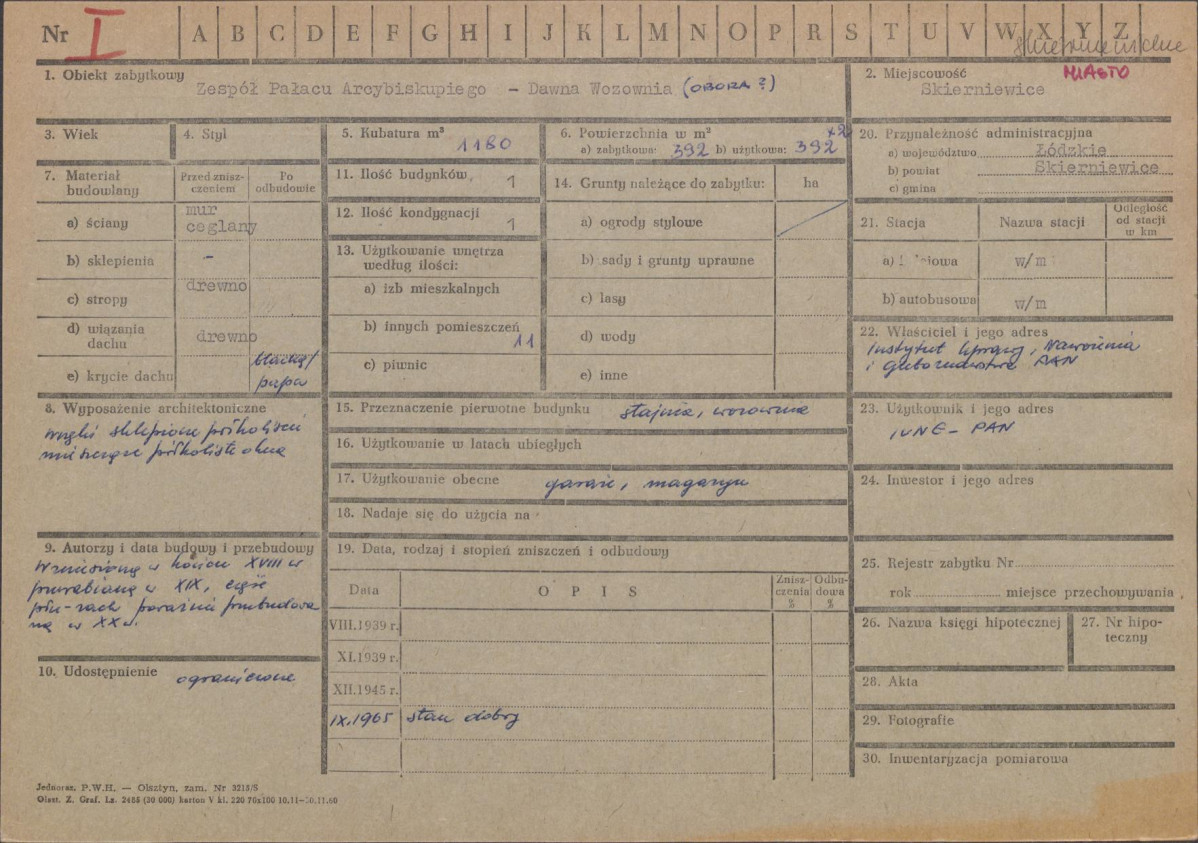 Nr I A B C D E F G H I J K L M N O P R S T U V W X Y Z
MIASTO
1. Obiekt zabytkowy
Zespół Pałacu Arcybiskupiego - Dawna Wozownia (OBORA?)
2. Miejscowość
Skierniewice
3. Wiek
4. Styl
5. Kubatura m³
1180
6. Powierzchnia w m²
a) zabytkowa: 392 b) użytkowa: 392 x2
20. Przynależność administracyjna
a) województwo Łódzkie
b) powiat Skierniewice
c) gmina
7. Materiał budowlany
Przed znisz-
czeniem
Po
odbudowie
a) ściany
mur
ceglany
b) sklepienia -
c) stropy drewno
d) wiązania
dachu drewno
e) krycie dachu
blacha/
papa
11. Ilość budynków, 1
12. Ilość kondygnacji 1
13. Użytkowanie wnętrza
według ilości:
a) izb mieszkalnych
b) innych pomieszczeń
11
c) piwnic
14. Grunty należące do zabytku: ha
a) ogrody stylowe
b) sady i grunty uprawne
c) lasy
d) wody
e) inne
21. Stacja Nazwa stacji
Odległość
od stacji
w km
w/m
b) autobusowa w/m
22. Właściciel i jego adres
Instytut Uprawy, Nawożenia
i Gleboznawstwa PAN
8. Wyposażenie architektoniczne
wnęki sklepione półkoliście
mieszczące półkoliste okna
15. Przeznaczenie pierwotne budynku stajnia, wozownia
16. Użytkowanie w latach ubiegłych
17. Użytkowanie obecne garaże, magazyn
18. Nadaje się do użycia na
23. Użytkownik i jego adres
IUNG - PAN
24. Inwestor i jego adres
9. Autorzy i data budowy i przebudowy
Wzniesiona w końcu XVIII w
przerabiana w XIX, część
przebudowa
na w XX w.
10. Udostępnienie ograniczone
19. Data, rodzaj i stopień zniszczeń i odbudowy
Data OPIS
Znisz-
czenia
%
Odbu-
dowa
%
VIII.1939 r.
XI.1939 r.
XII.1945 r.
IX.1965 stan dobry
25. Rejestr zabytku Nr
rok miejsce przechowywania
26. Nazwa księgi hipotecznej
27. Nr hipo-
teczny
28. Akta
29. Fotografie
30. Inwentaryzacja pomiarowa
Jednoraz. P.W.H. — Olsztyn, zam. Nr 3215/S